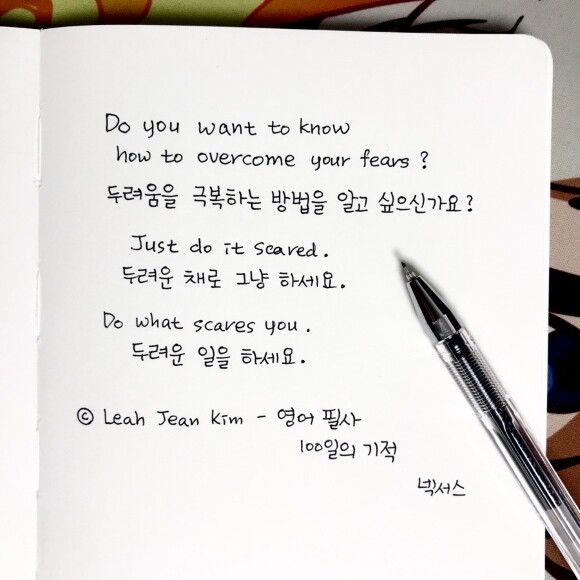 Do you want to know
how to overcome your fears?
두려움을 극복하는 방법을 알고 싶으신가요?
Just do it scared.
두려운 채로 그냥 하세요.
Do what scares you.
두려운 일을 하세요.
© Leah Jean Kim - 영어 필사
100일의 기적
넥서스